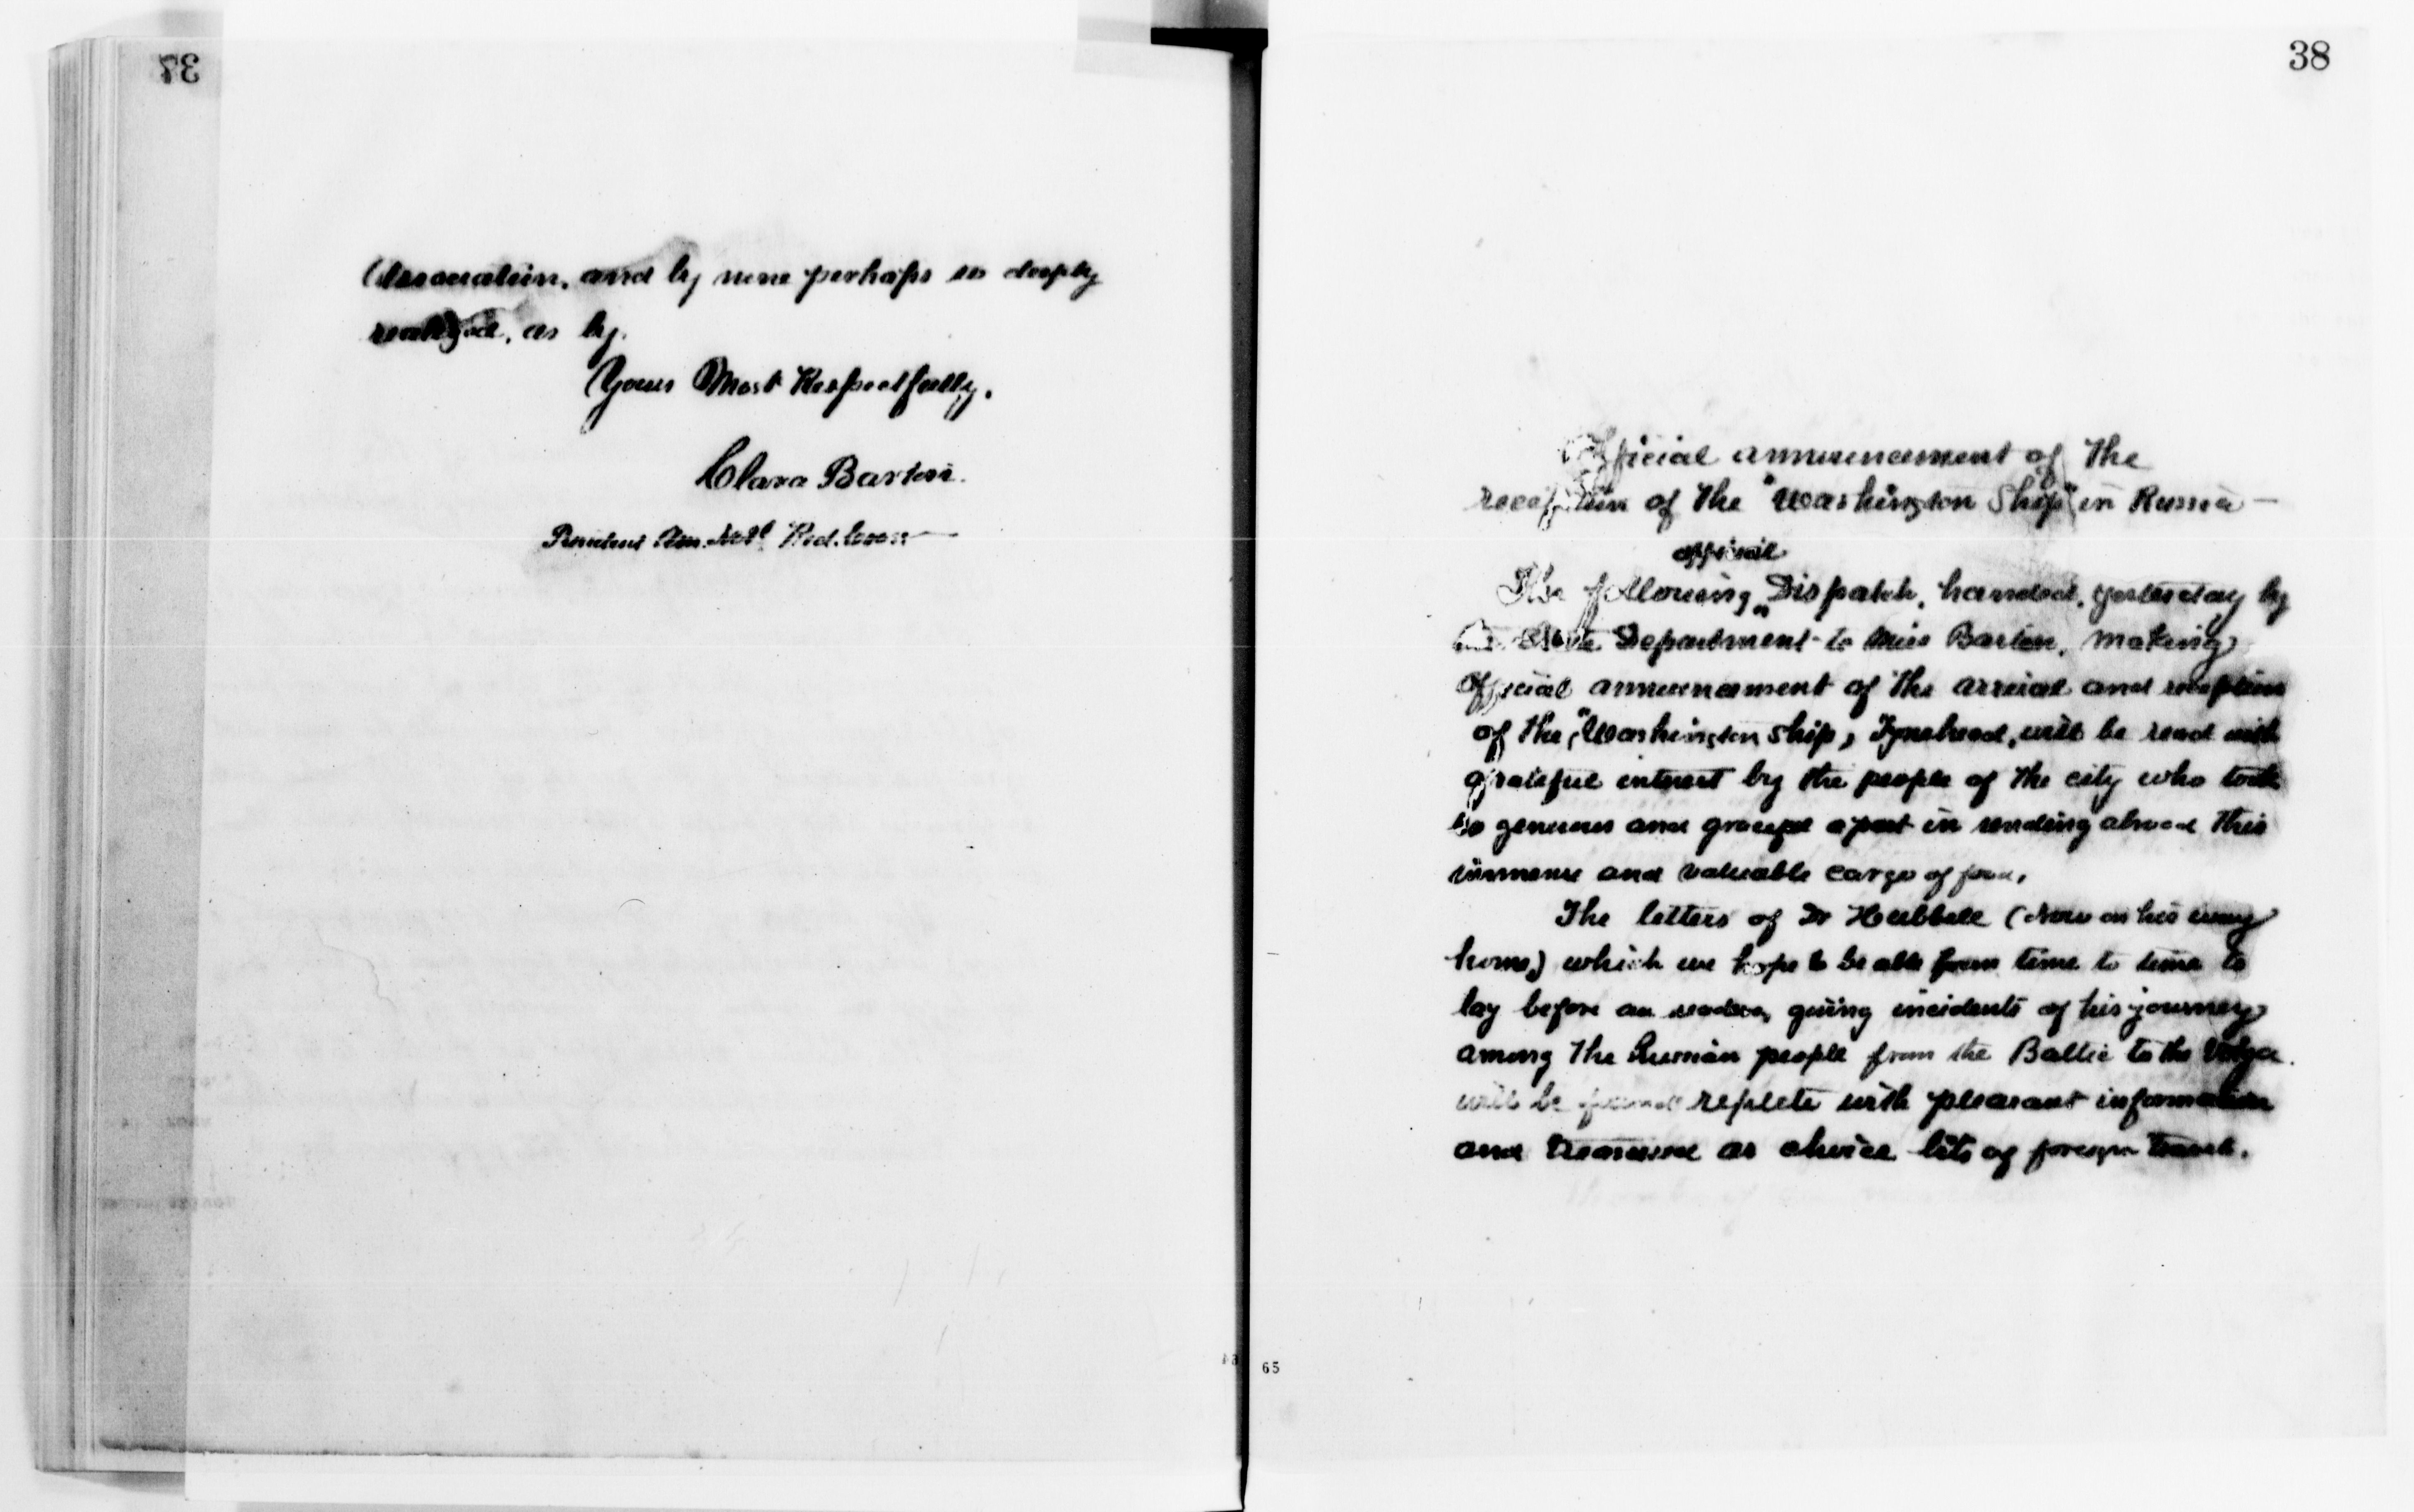 37
Association, and by none perhaps so deeply
realized, as by.
Yours Most Respectfully,
Clara Barton.
President Am. Natl. Red. Cross
38
Official announcement of the
reception of the "Washington Ship" in Russia —
official
The following Dispatch, handed, yesterday by
the State Department to Miss Barton, making
official announcement of the arrival and reception
of the, "Washington Ship, Tynehead, will be read with
grateful interest by the people of the city who took
so generous and graceful a part in sending abroad this
immense and valuable cargo of food.
The letters of Dr Hubbell (Now on his way
home) which we hope to be able from time to time to
lay before our readers, giving incidents of his journey
among the Russian people from the Baltic to the Volga.
will be found replete with pleasant information
and treasured as choice bits of foreign travel.
65